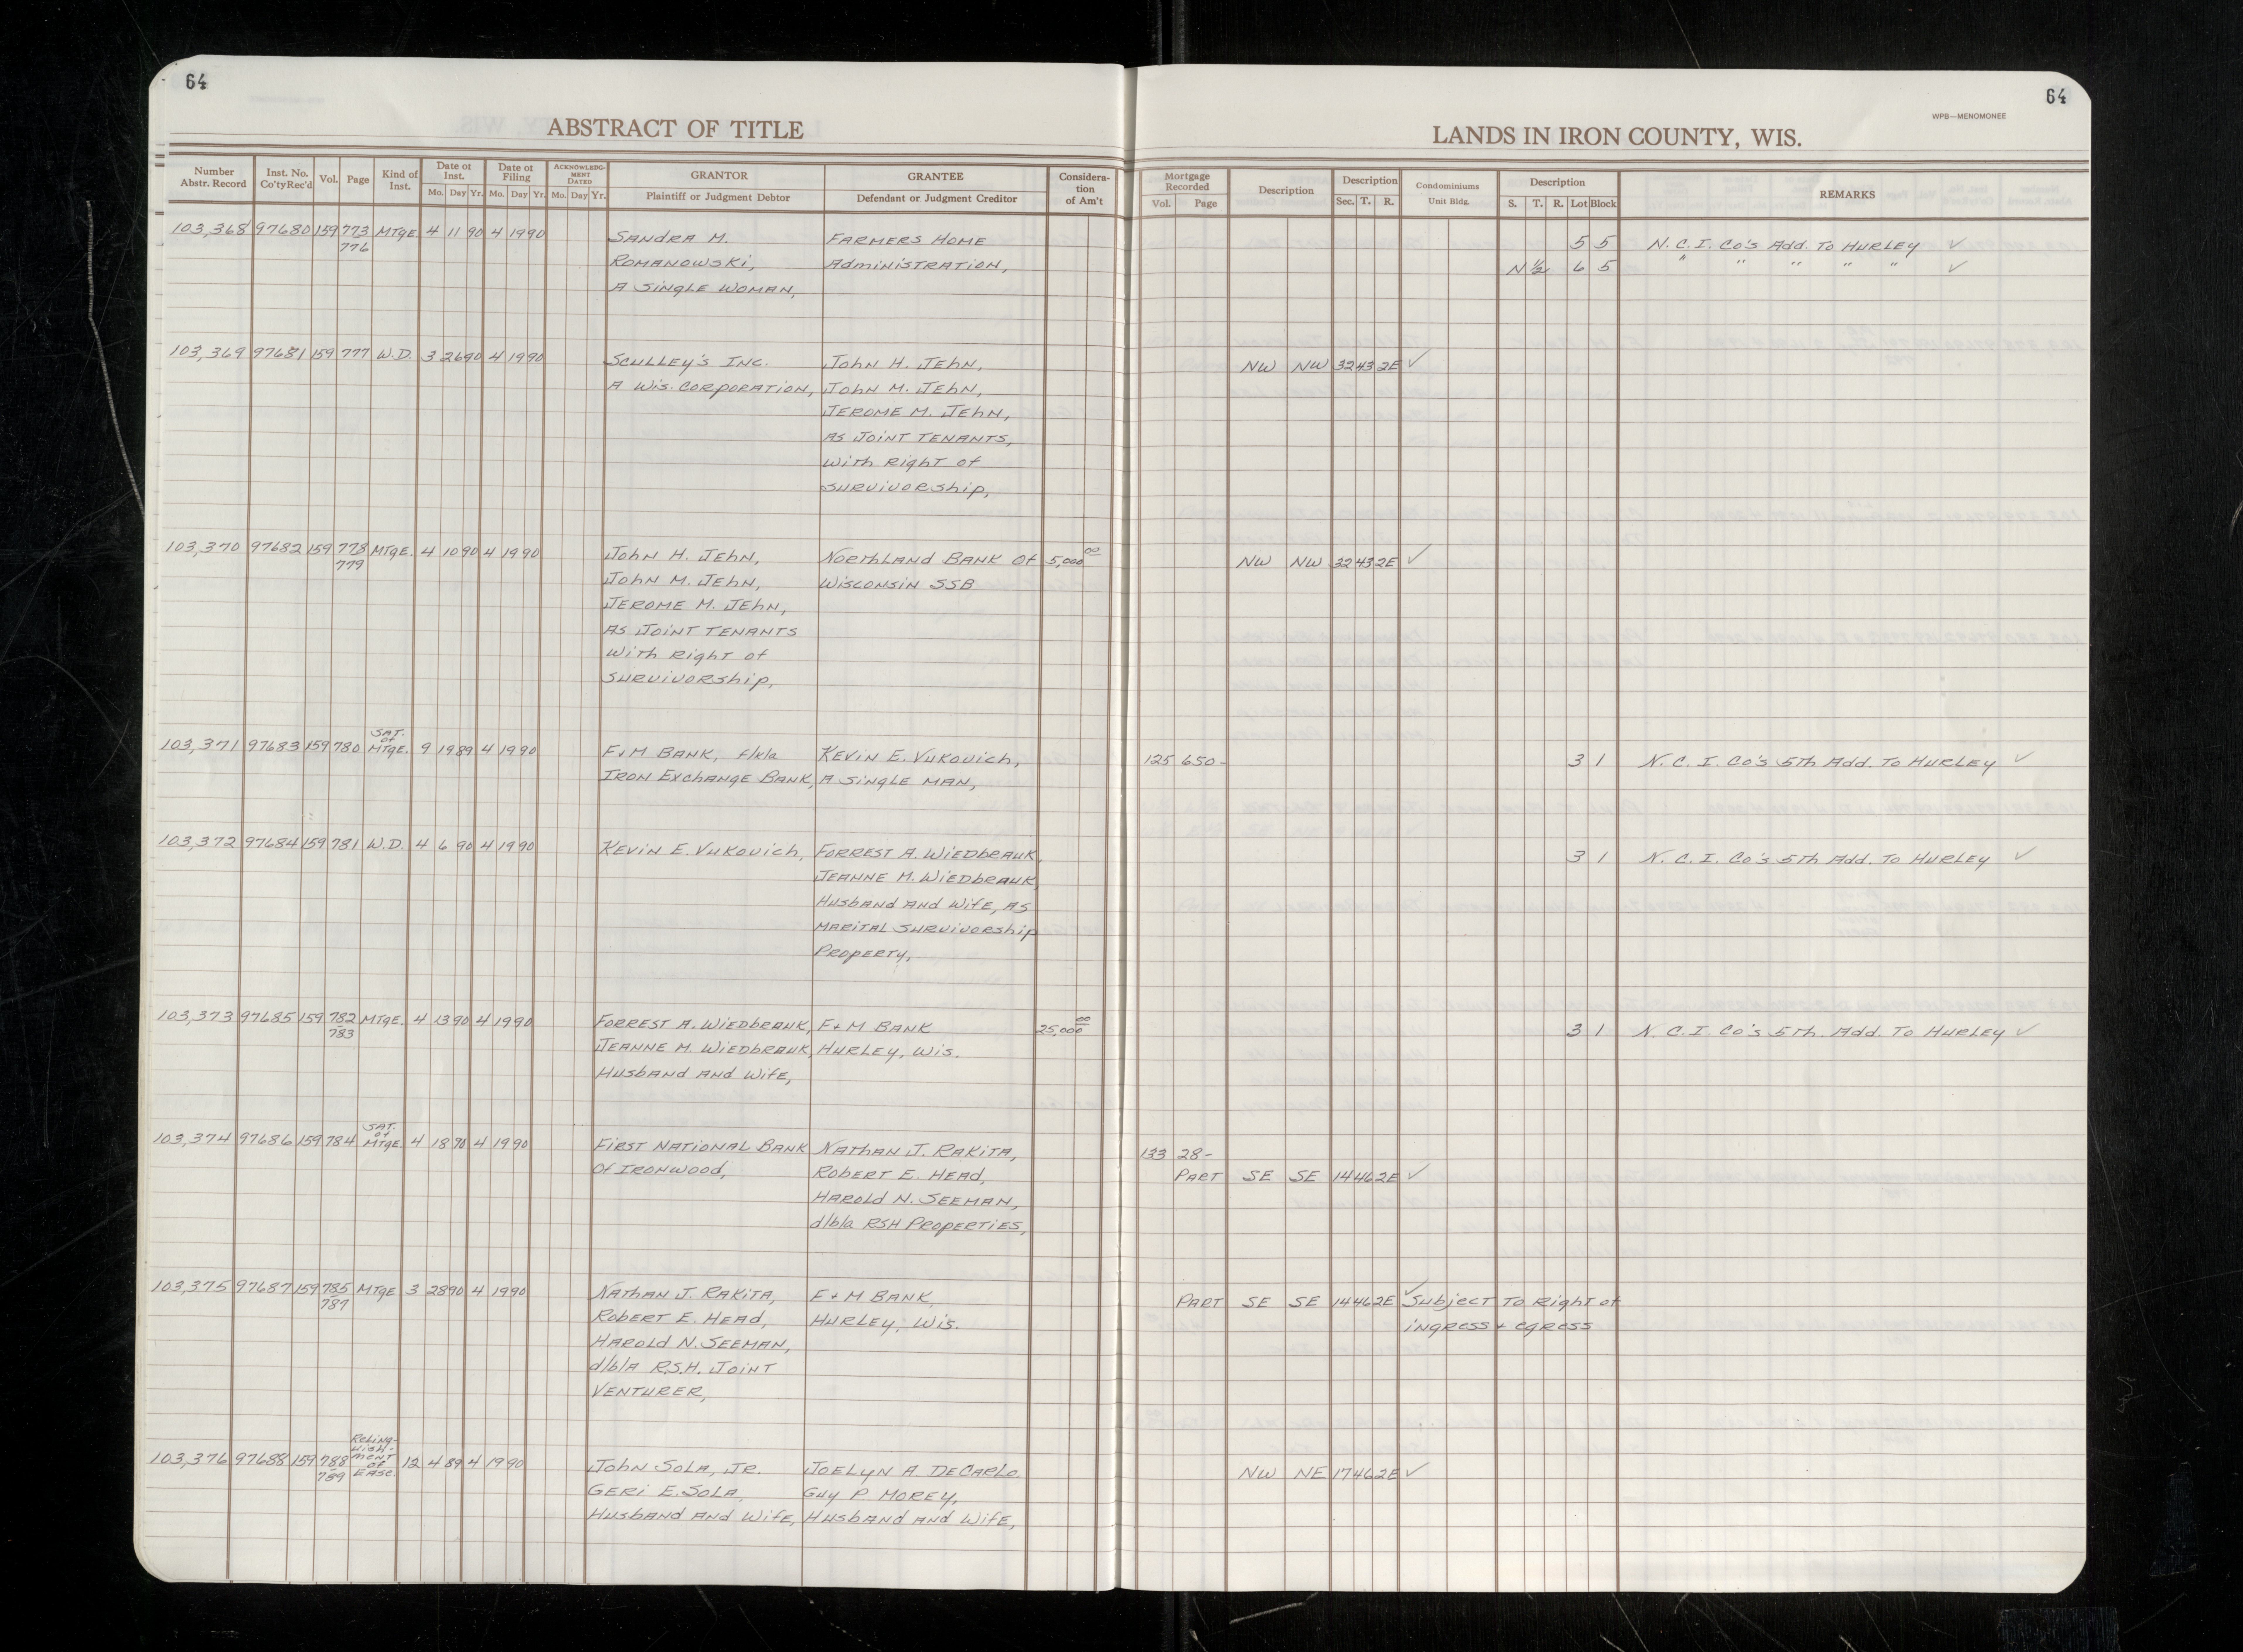 64
64
WPB—MENOMONEE
ABSTRACT OF TITLE
LANDS IN IRON COUNTY, WIS.
Number Abstr. Record | Inst. No. Co'ty Rec'd | Vol. | Page | Kind of Inst. | Date of Inst. Mo. Day Yr. | Date of Filing Mo. Day Yr. | ACKNOWLEDGMENT DATED Mo. Day Yr. | GRANTOR Plaintiff or Judgment Debtor | GRANTEE Defendant or Judgment Creditor | Consideration of Am't | Mortgage Recorded Vol. Page | Description | Description Sec. T. R. | Condominiums Unit Bldg. | Description S. T. R. Lot Block | REMARKS
103,368 97680 159 773 MTGE. 4 11 90 4 19 90 SANDRA M. FARMERS HOME 5 5 N. C. I. Co's Add. To HURLEY ✓
776 ROMANOWSKI, ADMINISTRATION, N ½ 6 5 " " " " " ✓
A SINGLE WOMAN,
103,369 97681 159 777 W.D. 3 26 90 4 19 90 SCULLEY'S INC. JOHN H. JEHN, NW NW 32 43 2E ✓
A WIS. CORPORATION, JOHN M. JEHN,
JEROME M. JEHN,
AS JOINT TENANTS,
WITH RIGHT OF
SURVIVORSHIP,
103,370 97682 159 778 MTGE. 4 10 90 4 19 90 JOHN H. JEHN, NORTHLAND BANK OF 5,000 00 NW NW 32 43 2E ✓
779 JOHN M. JEHN, WISCONSIN SSB
JEROME M. JEHN,
AS JOINT TENANTS
WITH RIGHT OF
SURVIVORSHIP,
103,371 97683 159 780 SAT. OF MTGE. 9 19 89 4 19 90 F+M BANK, f/k/a KEVIN E. VUKOVICH, 125 650- 3 1 N. C. I. Co's 5th Add. To HURLEY ✓
IRON EXCHANGE BANK, A SINGLE MAN,
103,372 97684 159 781 W.D. 4 6 90 4 19 90 KEVIN E. VUKOVICH, FORREST A. WIEDBRAUK, 3 1 N. C. I. Co's 5th Add. To HURLEY ✓
JEANNE M. WIEDBRAUK,
HUSBAND AND WIFE, AS
MARITAL SURVIVORSHIP
PROPERTY,
103,373 97685 159 782 MTGE. 4 13 90 4 19 90 FORREST A. WIEDBRAUK, F+M BANK 25,000 00 3 1 N. C. I. Co's 5th. Add. To HURLEY ✓
783 JEANNE M. WIEDBRAUK, HURLEY, WIS.
HUSBAND AND WIFE,
103,374 97686 159 784 SAT. OF MTGE. 4 18 90 4 19 90 FIRST NATIONAL BANK NATHAN J. RAKITA, 133 28-
OF IRONWOOD, ROBERT E. HEAD, PART SE SE 14 46 2E ✓
HAROLD N. SEEMAN,
d/b/a RSH PROPERTIES,
103,375 97687 159 785 MTGE 3 28 90 4 19 90 NATHAN J. RAKITA, F+M BANK, PART SE SE 14 46 2E ✓ SUBJECT TO RIGHT OF
787 ROBERT E. HEAD, HURLEY, WIS. INGRESS + EGRESS
HAROLD N. SEEMAN,
d/b/A R.S.H. JOINT
VENTURER,
103,376 97688 159 788 Relinq-uish-ment of EASE. 12 4 89 4 19 90 JOHN SOLA, JR. JOELYN A. DECARLO NW NE 17 46 2E ✓
789 GERI E. SOLA, GUY P. MOREY,
HUSBAND AND WIFE, HUSBAND AND WIFE,